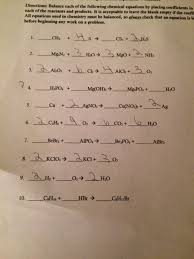 Directions: Balance each of the following chemical equations by placing coefficients in
each of the reactants and products. It is acceptable to leave the blank empty if the coeff
All equations used in chemistry must be balanced, so always check that an equation is b
before beginning any work on a problem.
1. CH₄ + 4 S → CS₂ + 2 H₂S
2. Mg₃N₂ 3 H₂O → 3 MgO + 2 NH₃
3. 2 Al₂O₃ + Cl₂ → 4 AlCl₃ + 3 O₂
4. H₃PO₄ + Mg(OH)₂ → Mg₃PO₄ + H₂O
5. Cu + 2 AgNO₃ → Cu(NO₃)₂ + 2 Ag
6. O₂ → CO₂ + H₂O
7. BeBr₂ + AlPO₄ → Be₃PO₄ + AlBr₃
8. 2 KClO₃ → 2 KCl + 3 O₂
9. 2 H₂ + O₂ → 2 H₂O
10. + HBr →